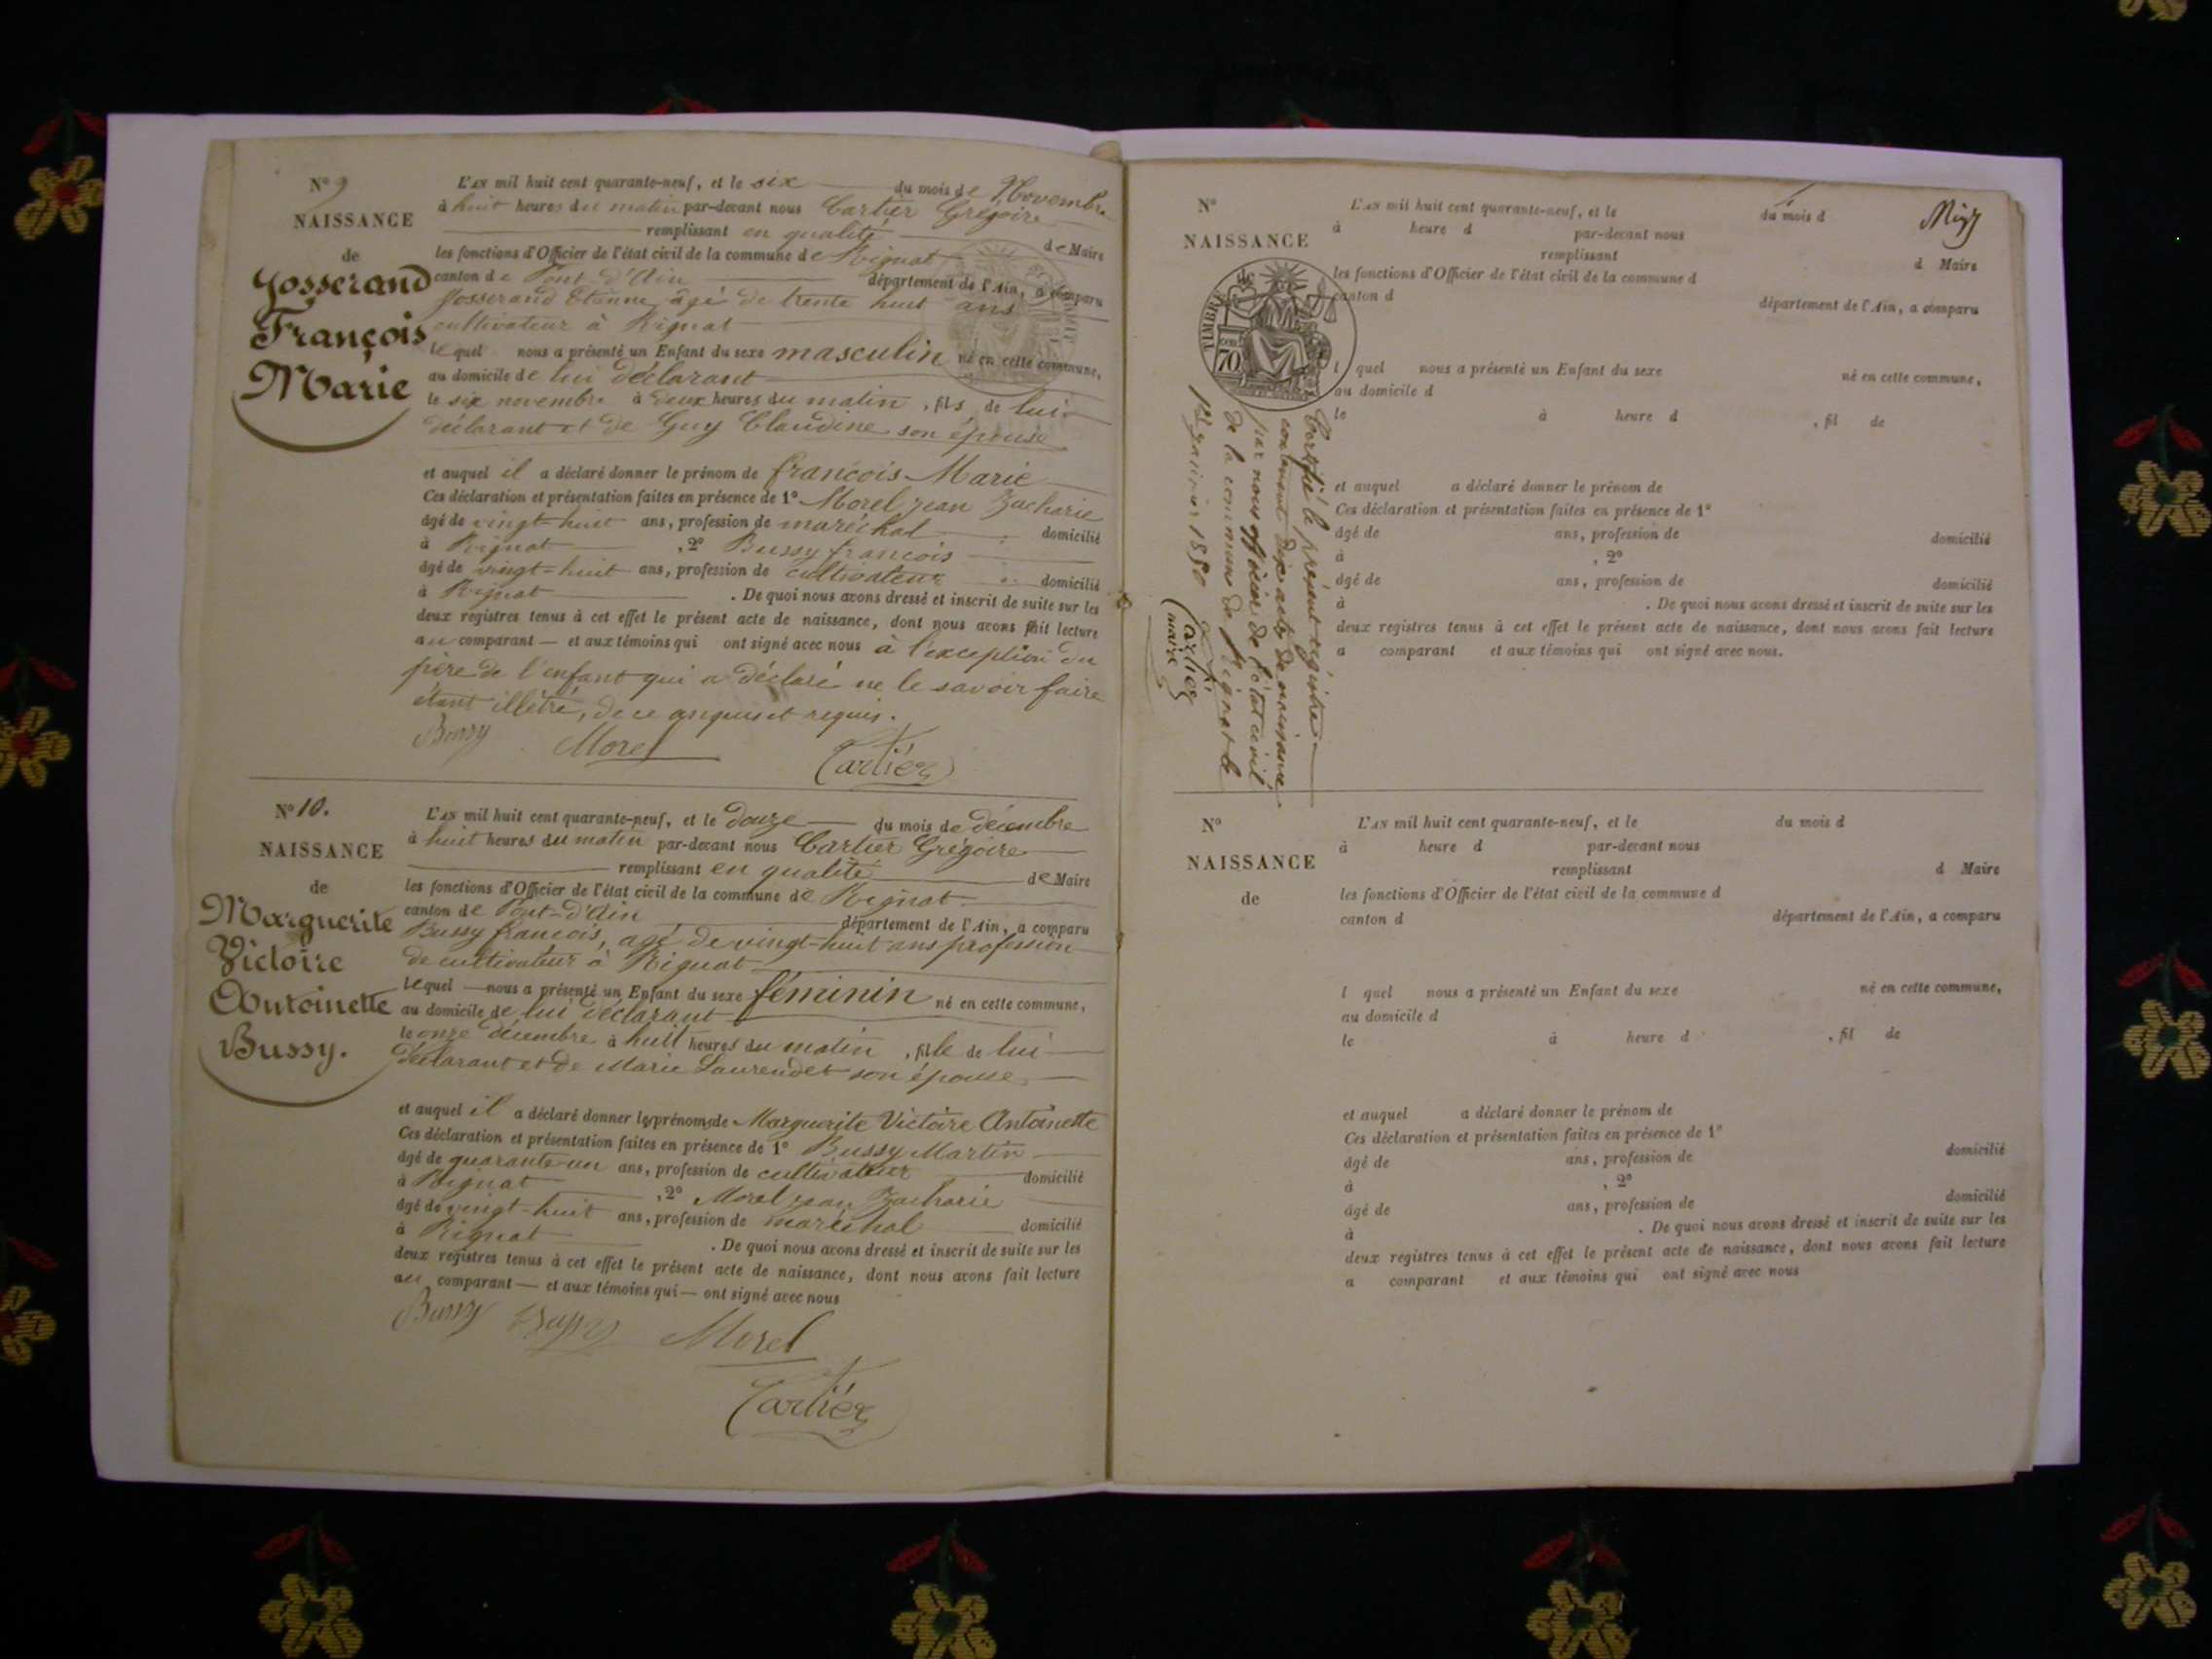 N° 9
NAISSANCE
de
Josserand
François
Marie
L'AN mil huit cent quarante-neuf, et le six du mois de Novembre
à huit heures du matin par-devant nous Cartier Grégoire
remplissant en qualité de Maire
les fonctions d'Officier de l'état civil de la commune de Rignat
canton de Pont-d'Ain département de l'Ain, a comparu
Josserand Etienne, âgé de trente huit ans
cultivateur à Rignat
lequel nous a présenté un Enfant du sexe masculin né en cette commune,
au domicile de lui déclarant
le six novembre à deux heures du matin, fils de lui
déclarant et de Guy Claudine son épouse
et auquel il a déclaré donner le prénom de françois Marie
Ces déclaration et présentation faites en présence de 1° Morel jean Zacharie
âgé de vingt-huit ans, profession de maréchal domicilié
à Rignat, 2° Bussy françois
âgé de vingt-huit ans, profession de cultivateur domicilié
à Rignat. De quoi nous avons dressé et inscrit de suite sur les
deux registres tenus à cet effet le présent acte de naissance, dont nous avons fait lecture
au comparant — et aux témoins qui ont signé avec nous à l'exception du
père de l'enfant qui a déclaré ne le savoir faire
étant illétré, de ce enquis et requis.
Bussy Morel
Cartier
N° 10.
NAISSANCE
de
Marguerite
Victoire
Antoinette
Bussy.
L'AN mil huit cent quarante-neuf, et le douze du mois de décembre
à huit heures du matin par-devant nous Cartier Grégoire
remplissant en qualité de Maire
les fonctions d'Officier de l'état civil de la commune de Rignat
canton de Pont-d'Ain département de l'Ain, a comparu
Bussy francois, agé de vingt-huit ans profession
de cultivateur à Rignat
lequel — nous a présenté un Enfant du sexe féminin né en cette commune,
au domicile de lui déclarant
le onze décembre à huit heures du matin, fille de lui
déclarant et de Marie Laurendet son épouse
et auquel il a déclaré donner les prénoms de Marguerite Victoire Antoinette
Ces déclaration et présentation faites en présence de 1° Bussy Martin
âgé de quarante-un ans, profession de cultivateur domicilié
à Rignat, 2° Morel jean Zacharie
âgé de vingt-huit ans, profession de maréchal domicilié
à Rignat. De quoi nous avons dressé et inscrit de suite sur les
deux registres tenus à cet effet le présent acte de naissance, dont nous avons fait lecture
au comparant — et aux témoins qui — ont signé avec nous
Bussy Bussy Morel
Cartier
N°
NAISSANCE
de
TIMBRE
70
L'AN mil huit cent quarante-neuf, et le du mois d
à heure d par-devant nous
remplissant d Maire
les fonctions d'Officier de l'état civil de la commune d
canton d département de l'Ain, a comparu
l quel nous a présenté un Enfant du sexe né en cette commune,
au domicile d
le à heure d , fil de
et auquel a déclaré donner le prénom de
Ces déclaration et présentation faites en présence de 1°
âgé de ans, profession de domicilié
à , 2°
âgé de ans, profession de domicilié
à . De quoi nous avons dressé et inscrit de suite sur les
deux registres tenus à cet effet le présent acte de naissance, dont nous avons fait lecture
a comparant et aux témoins qui ont signé avec nous.
Certifié le présent registre
contenant dix actes de naissance
par nous officier de l'état civil
de la commune de Rignat le
1er janvier 1850
Cartier
maire
N°
NAISSANCE
de
L'AN mil huit cent quarante-neuf, et le du mois d
à heure d par-devant nous
remplissant d Maire
les fonctions d'Officier de l'état civil de la commune d
canton d département de l'Ain, a comparu
l quel nous a présenté un Enfant du sexe né en cette commune,
au domicile d
le à heure d , fil de
et auquel a déclaré donner le prénom de
Ces déclaration et présentation faites en présence de 1°
âgé de ans, profession de domicilié
à , 2°
âgé de ans, profession de domicilié
à . De quoi nous avons dressé et inscrit de suite sur les
deux registres tenus à cet effet le présent acte de naissance, dont nous avons fait lecture
a comparant et aux témoins qui ont signé avec nous